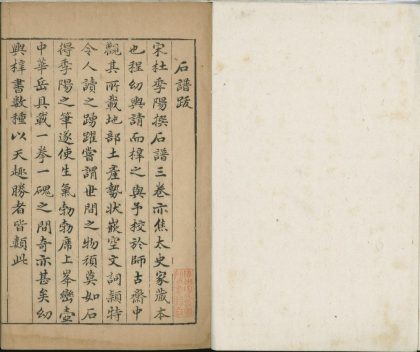 石譜跋
宋杜季陽撰石譜三卷亦焦太史家藏本
也程幼輿請而梓之與予挍於師古齋中
觀其所載地部土產勢狀嵌空文詞穎特
令人讀之踴躍嘗謂世間之物頑莫如石
得季陽之筆遂使生氣勃勃席上峯巒壺
中華岳具載一拳一磈之間奇亦甚矣幼
輿梓書數種以天趣勝者皆類此